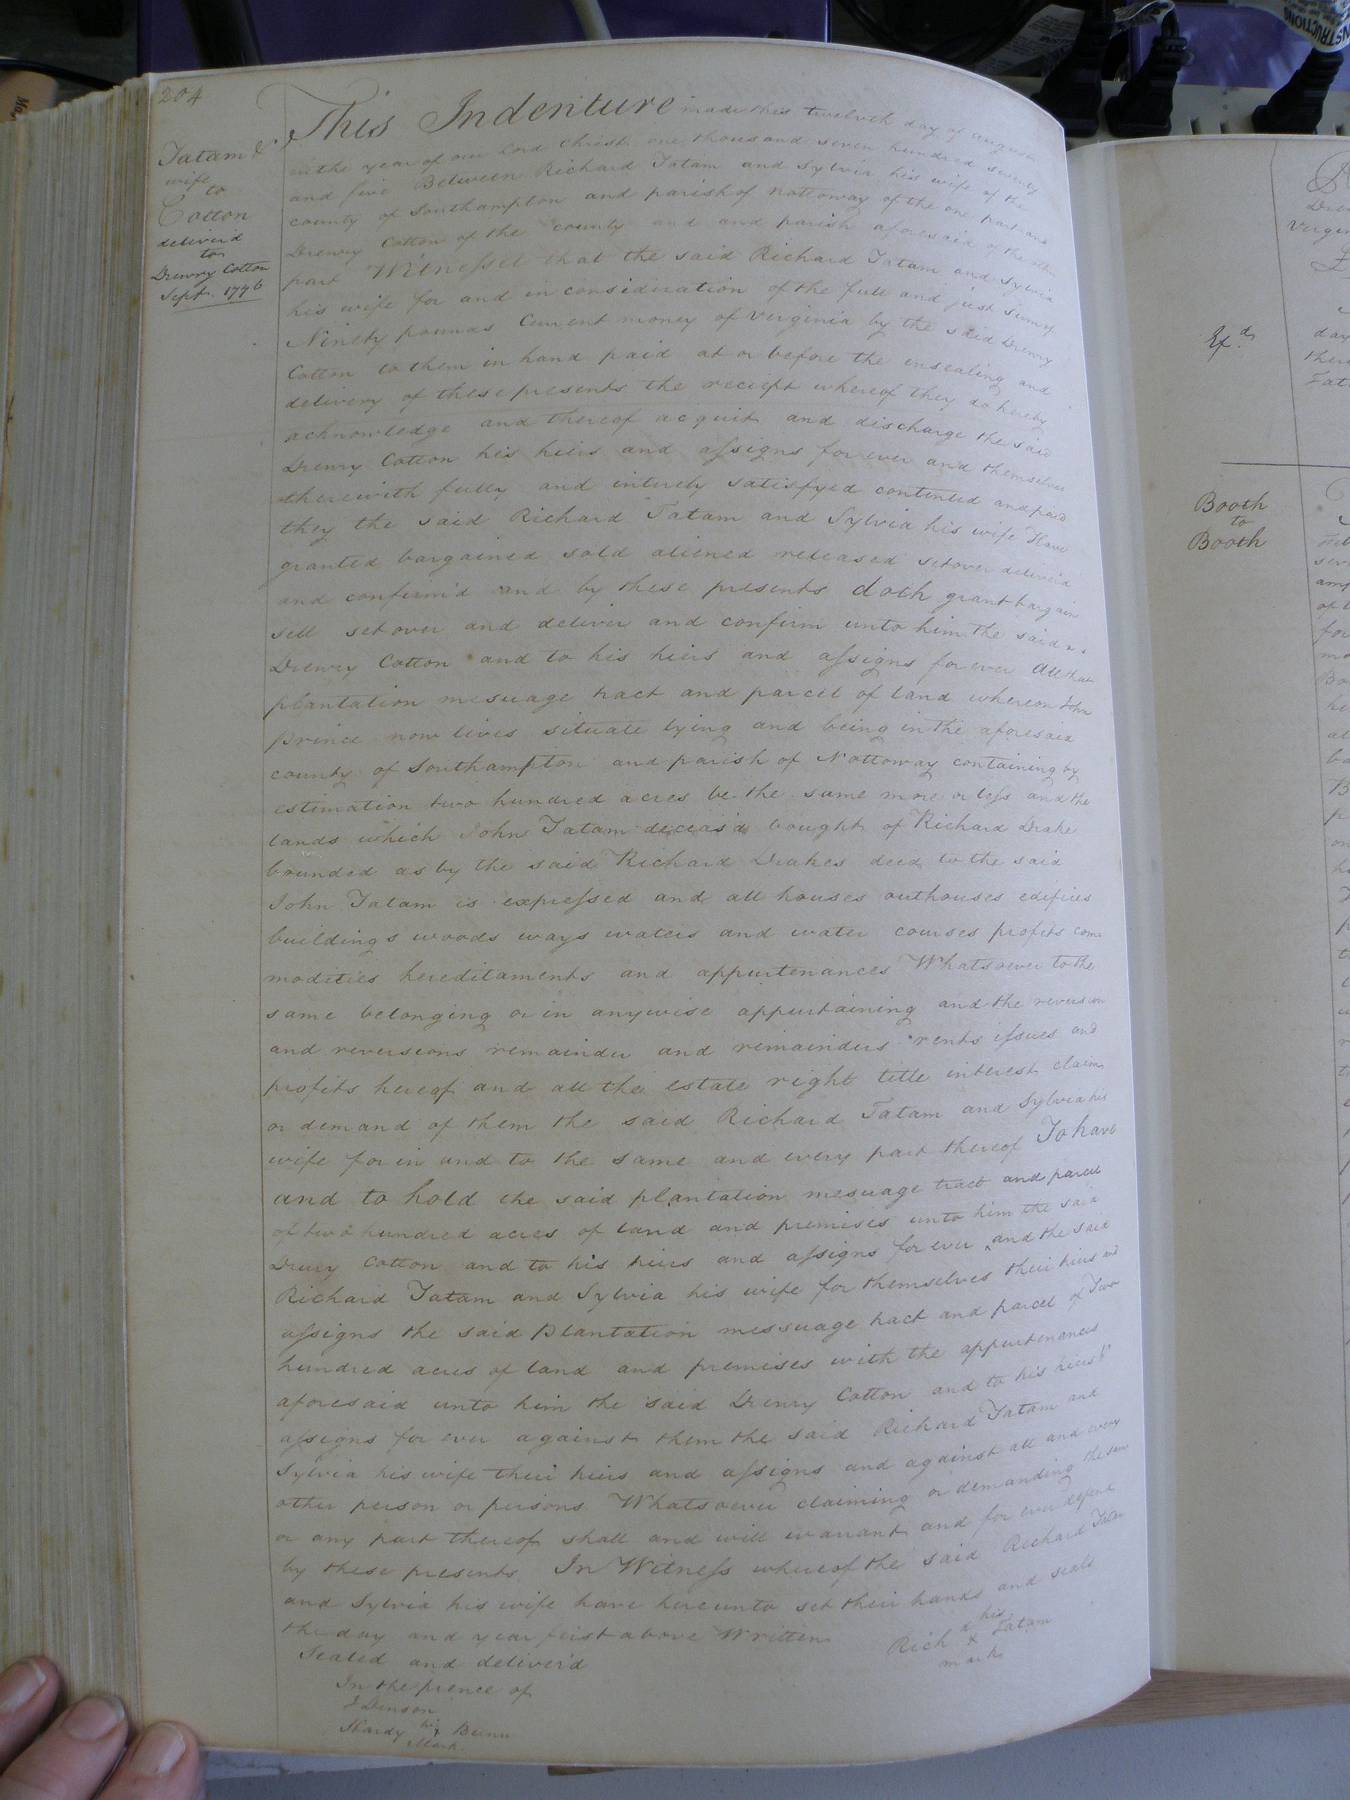 204
Tatam &
wife
to
Cotton
deliver'd
to
Drewry Cotton
Sept. 1776
This Indenture made this twelvth day of august
in the year of our lord Christ one thousand seven hundred seventy
and five Between Richard Tatam and Sylvia his wife of the
county of Southampton and parish of Nottoway of the one part and
Drewry Cotton of the county and and parish aforesaid of the other
part Witnesset that the said Richard Tatam and Sylvia
his wife for and in consideration of the full and just sum of
Ninety pounds Current money of Virginia by the said Drewry
Cotton to them in hand paid at or before the ensealing and
delivery of these presents the reciept whereof they do hereby
acknowledge and thereof acquit and discharge the said
Drewry Cotton his heirs and assigns for ever and themselves
therewith fully and intirely satisfyed contented and paid
they the said Richard Tatam and Sylvia his wife Have
granted bargained sold aliened released setover deliver'd
and confirm'd and by these presents doth grant bargain
sell setover and deliver and confirm unto him the said
Drewry Cotton and to his heirs and assigns for ever all that
plantation mesuage tract and parcel of land whereon John
Prince now lives situate lying and being in the aforesaid
county of Southampton and parish of Nottoway containing by
estimation two hundred acres be the same more or less and the
lands which John Tatam deceas'd bought of Richard Drake
bounded as by the said Richard Drakes deed to the said
John Tatam is expressed and all houses outhouses edifices
buildings woods ways waters and water courses profits com
modities hereditaments and appurtenances Whatsoever to the
same belonging or in anywise appurtaining and the reversion
and reversions remainder and remainders rents issues and
profits hereof and all the estate right title interest claim
or demand of them the said Richard Tatam and Sylvia his
wife for in and to the same and every part thereof To have
and to hold the said plantation mesuage tract and parcel
of two hundred acres of land and premises unto him the said
Drewry Cotton and to his heirs and assigns for ever and the said
Richard Tatam and Sylvia his wife for themselves their heirs and
assigns the said Plantation messuage tract and parcel of Two
hundred acres of land and premises with the appurtenances
aforesaid unto him the said Drewry Cotton and to his heirs &
assigns for ever against them the said Richard Tatam and
Sylvia his wife their heirs and assigns and against all and every
other person or persons Whatsoever claiming or demanding the same
or any part thereof shall and will warrant and for ever defend
by these presents In Witness whereof the said Richard Tatam
and Sylvia his wife have hereunto set their hands and seals
the day and year first above Written
Sealed and deliver'd
In the prence of
J Denson
Hardy his x Bunn
Mark
his
Richd x Tatam
mark
Exd.
Booth
to
Booth